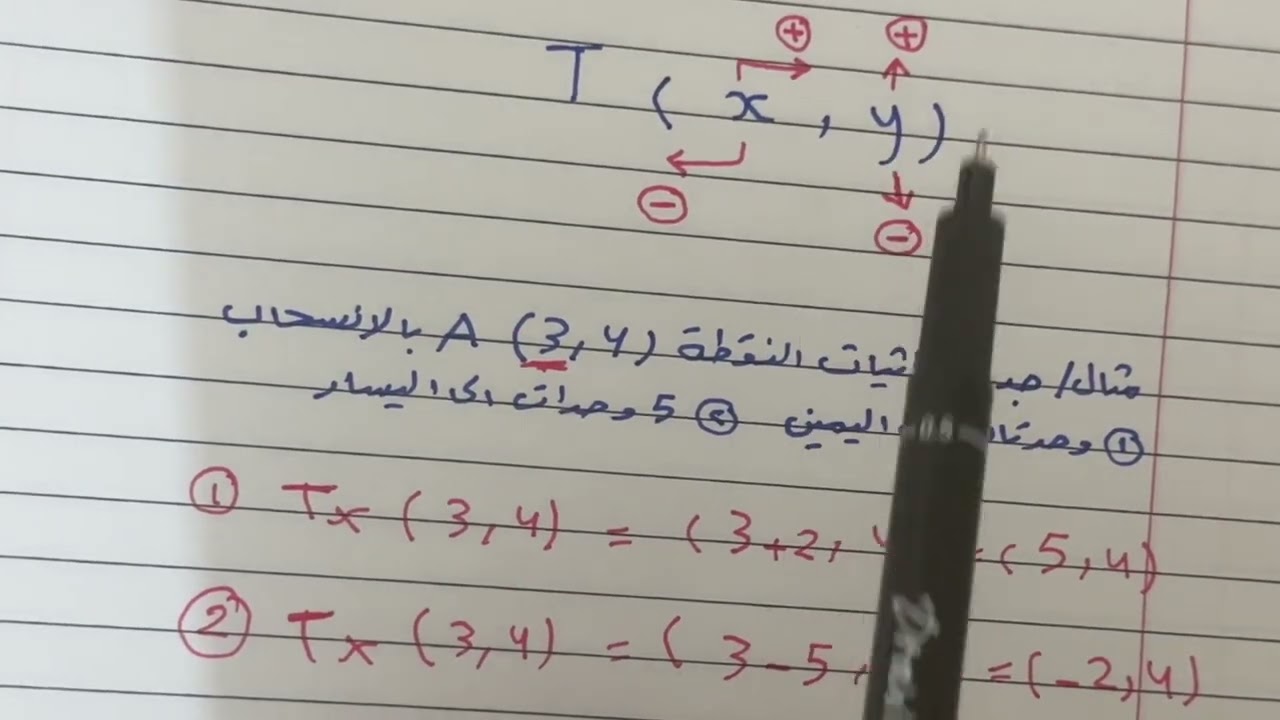 ⊕ ⊕
T ( x , y )
⊖ ⊖
مثال/ جد النقطة A (3,4) بالانسحاب
① اليمين ② 5 وحدات الى اليسار
① Tx (3,4) = (3+2, = (5,4)
② Tx (3,4) = (3-5, = (-2,4)